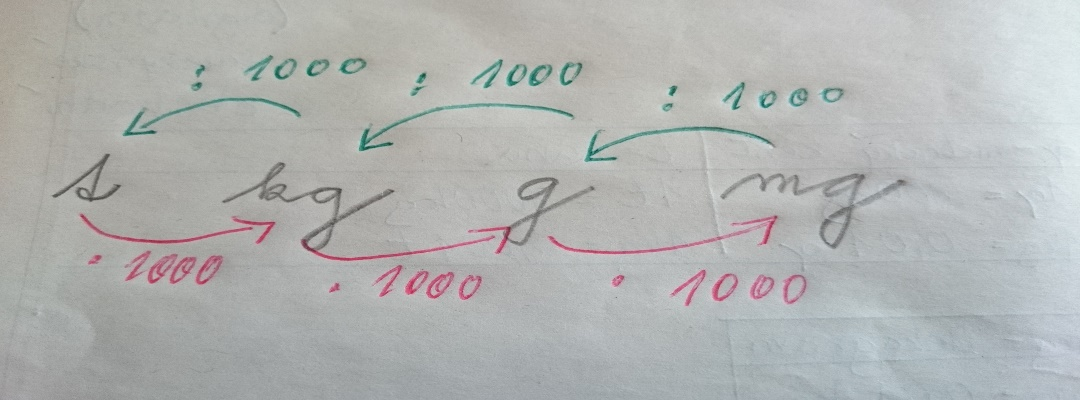 : 1000 : 1000 : 1000
t kg g mg
· 1000 · 1000 · 1000